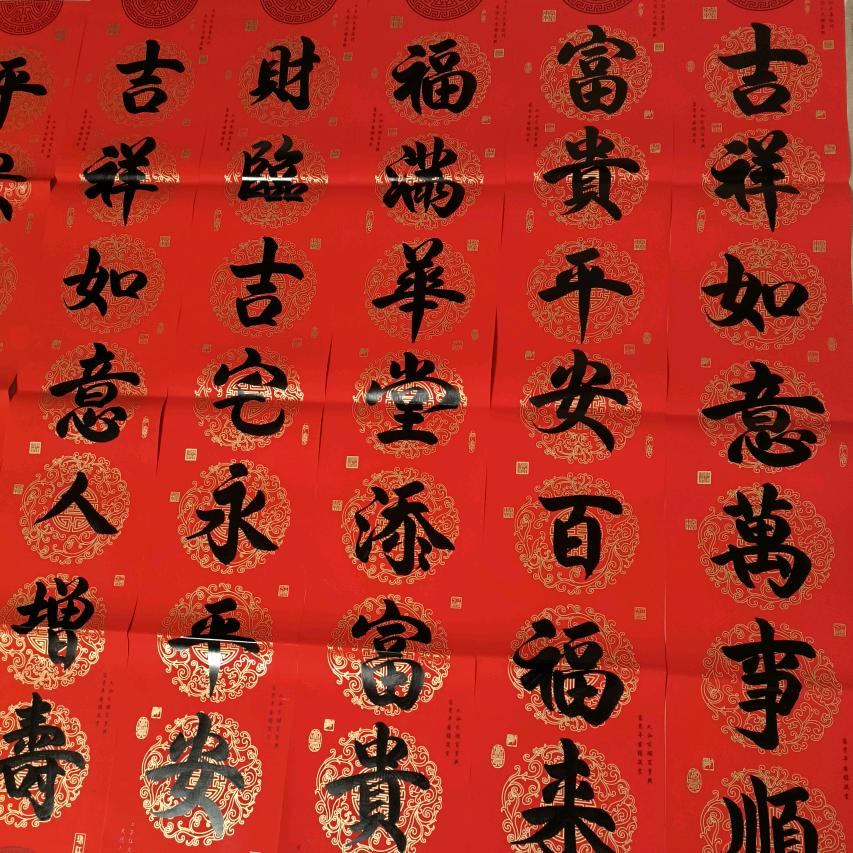 吉祥如意萬事順
富貴平安百福来
福满華堂添富貴
財臨吉宅永平安
吉祥如意人增壽
平安